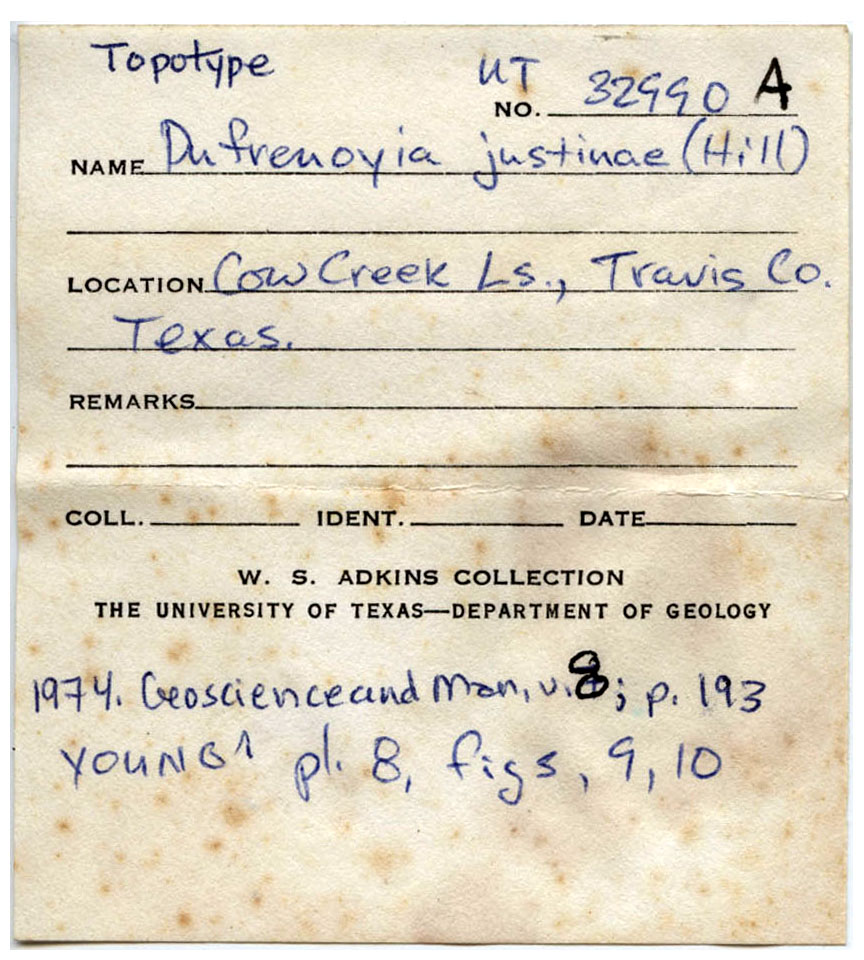 Topotype
UT
NO. 32990 A
NAME Dufrenoyia justinae (Hill)
LOCATION Cow Creek Ls., Travis Co.
Texas.
REMARKS
COLL. IDENT. DATE
W. S. ADKINS COLLECTION
THE UNIVERSITY OF TEXAS—DEPARTMENT OF GEOLOGY
1974. Geoscience and Man, v. 8; p. 193
YOUNG ^ pl. 8, figs, 9, 10